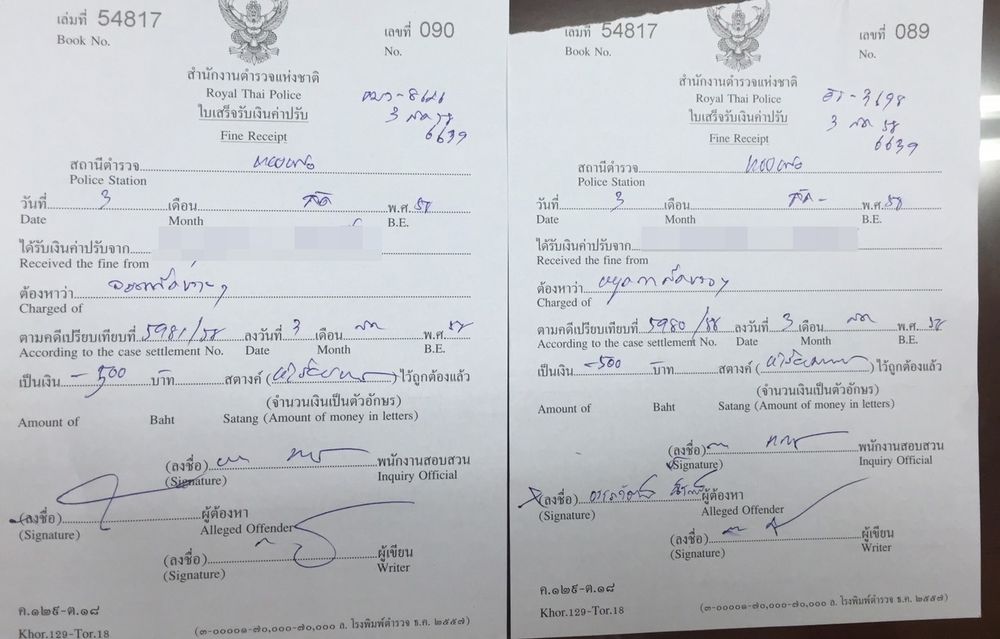 เล่มที่ 54817
Book No.
เลขที่ 090
No.
สำนักงานตำรวจแห่งชาติ
Royal Thai Police
ใบเสร็จรับเงินค่าปรับ
Fine Receipt
3 สค 58
6639
สถานีตำรวจ
Police Station
วันที่ 3 เดือน สค พ.ศ. 58
Date Month B.E.
ได้รับเงินค่าปรับจาก
Received the fine from
ต้องหาว่า
Charged of
ตามคดีเปรียบเทียบที่ 5981/58 ลงวันที่ 3 เดือน สค พ.ศ. 58
According to the case settlement No. Date Month B.E.
เป็นเงิน -500 บาท สตางค์ (ห้าร้อยบาท) ไว้ถูกต้องแล้ว
(จำนวนเงินเป็นตัวอักษร)
Amount of Baht Satang (Amount of money in letters)
(ลงชื่อ) พนักงานสอบสวน
(Signature) Inquiry Official
(ลงชื่อ) ผู้ต้องหา
(Signature) Alleged Offender
(ลงชื่อ) ผู้เขียน
(Signature) Writer
ค.๑๒๙-ต.๑๘
Khor.129-Tor.18
(๓-๐๐๐๐๑-๗๐,๐๐๐-๗๐,๐๐๐ ล. โรงพิมพ์ตำรวจ ธ.ค. ๒๕๕๗)
เล่มที่ 54817
Book No.
เลขที่ 089
No.
สำนักงานตำรวจแห่งชาติ
Royal Thai Police
ใบเสร็จรับเงินค่าปรับ
Fine Receipt
3 สค 58
6639
สถานีตำรวจ
Police Station
วันที่ 3 เดือน สค - พ.ศ. 58
Date Month B.E.
ได้รับเงินค่าปรับจาก
Received the fine from
ต้องหาว่า
Charged of
ตามคดีเปรียบเทียบที่ 5980/58 ลงวันที่ 3 เดือน สค พ.ศ. 58
According to the case settlement No. Date Month B.E.
เป็นเงิน -500 บาท สตางค์ (ห้าร้อยบาท) ไว้ถูกต้องแล้ว
(จำนวนเงินเป็นตัวอักษร)
Amount of Baht Satang (Amount of money in letters)
(ลงชื่อ) พนักงานสอบสวน
(Signature) Inquiry Official
(ลงชื่อ) ผู้ต้องหา
(Signature) Alleged Offender
(ลงชื่อ) ผู้เขียน
(Signature) Writer
ค.๑๒๙-ต.๑๘
Khor.129-Tor.18
(๓-๐๐๐๐๑-๗๐,๐๐๐-๗๐,๐๐๐ ล. โรงพิมพ์ตำรวจ ธ.ค. ๒๕๕๗)